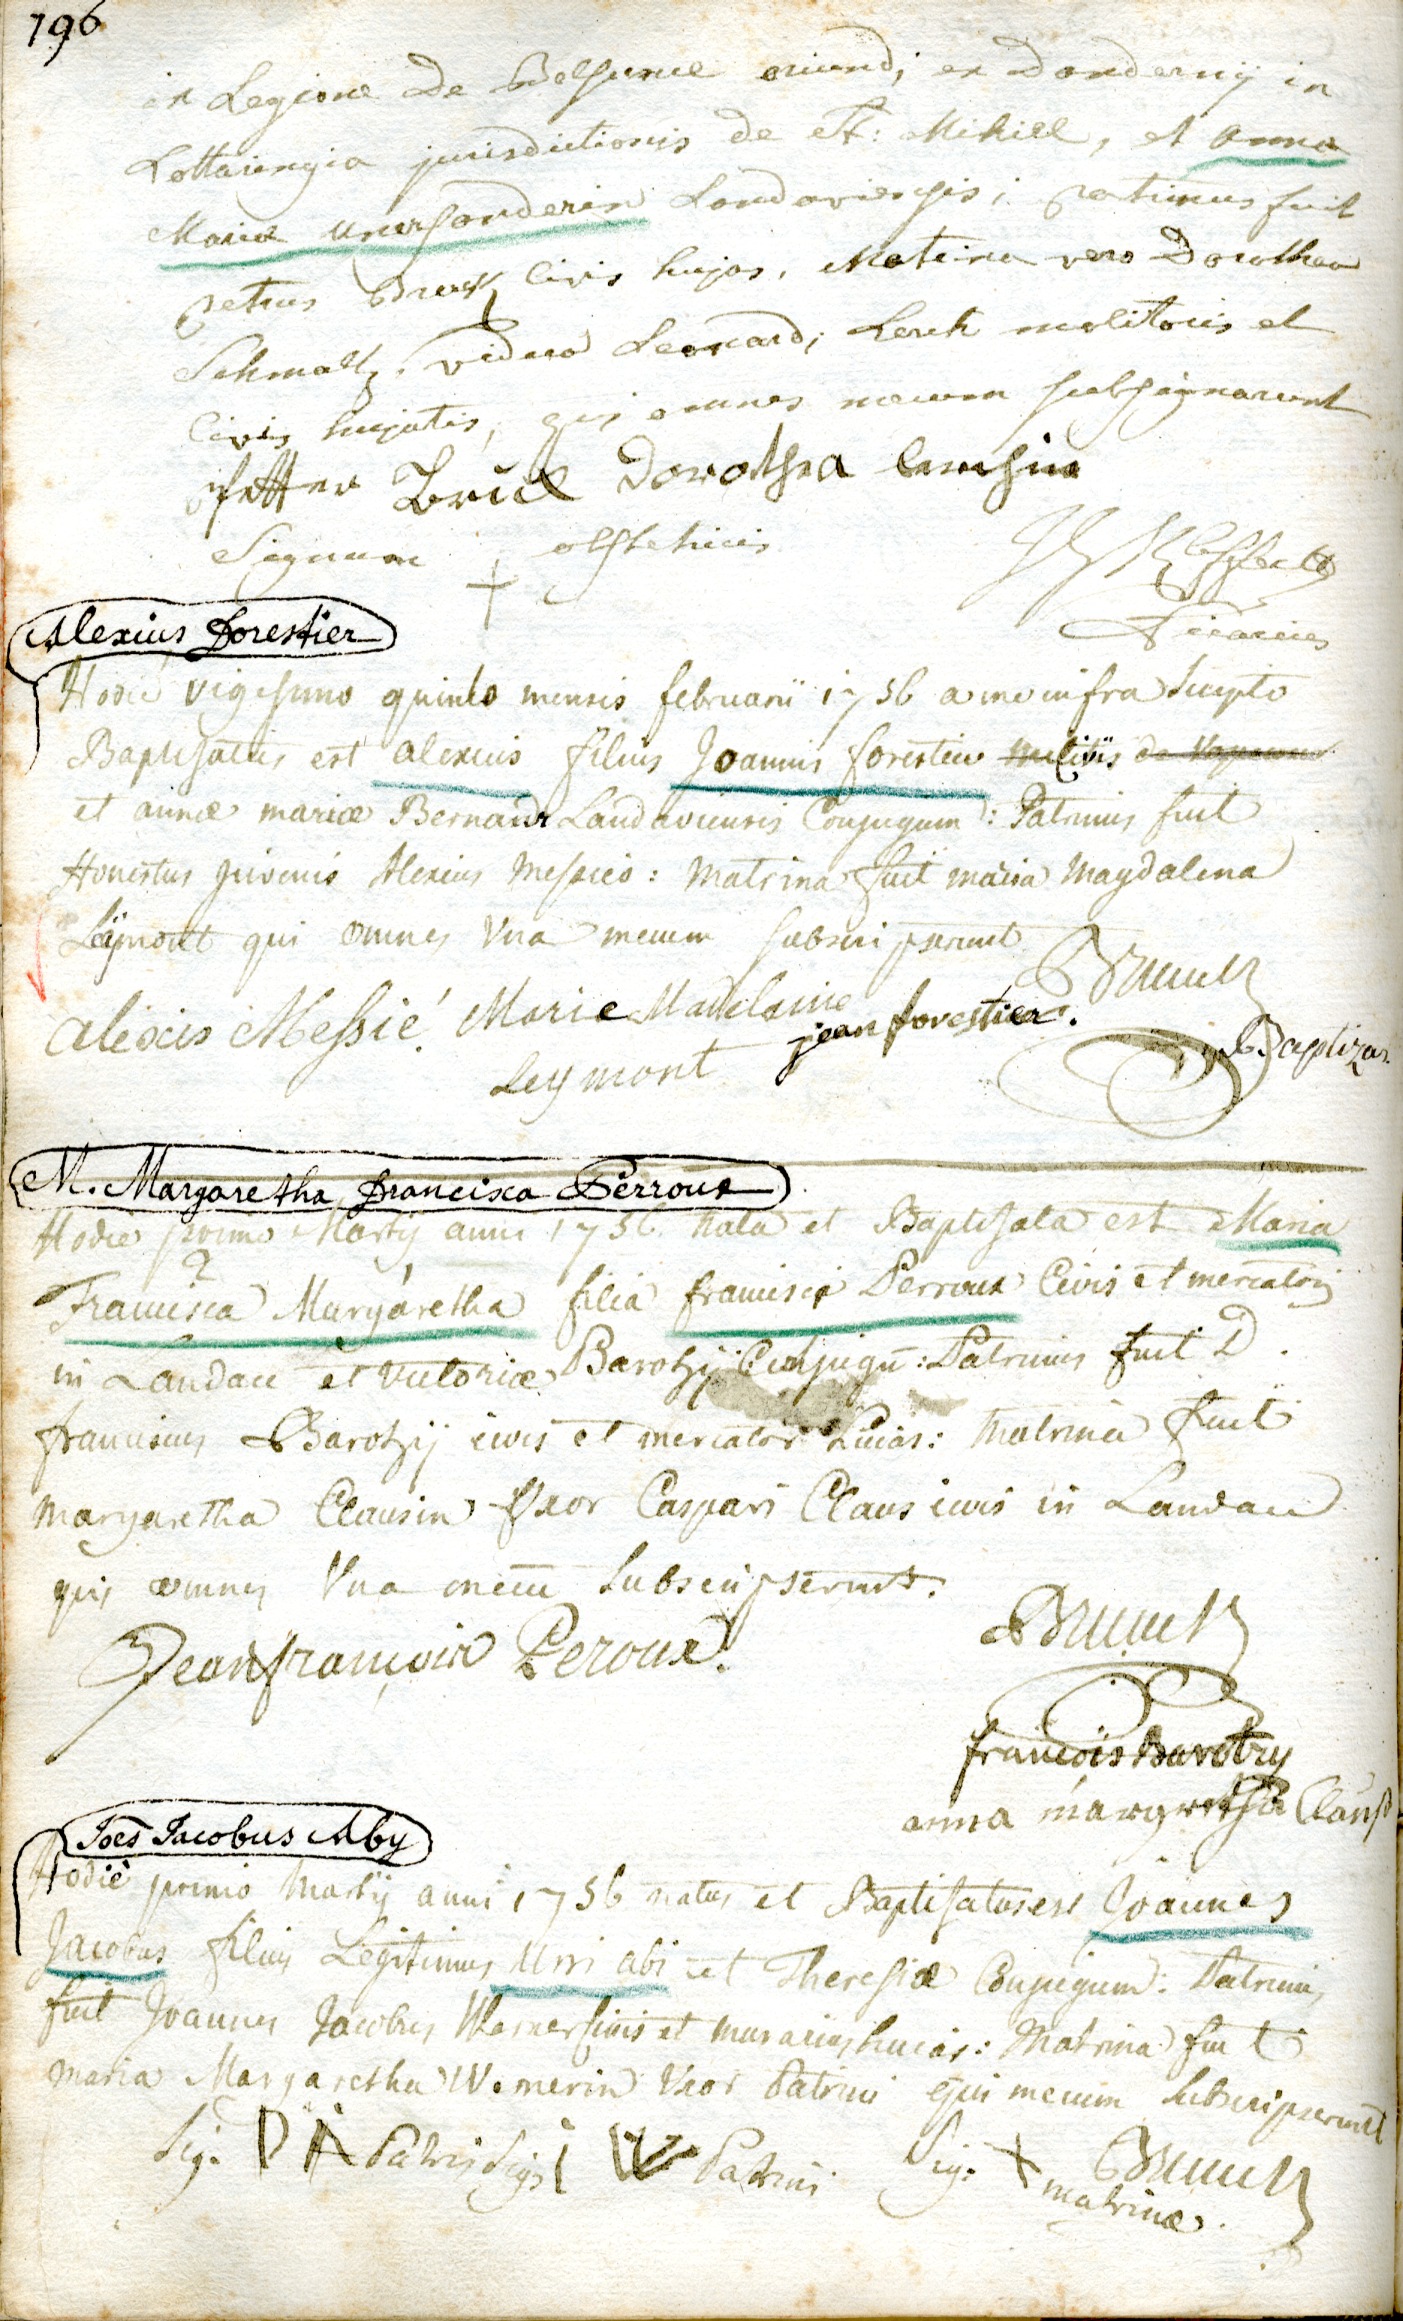 196
ex Legione de Belsunce oriundi ex Donderny in
Lottaringia jurisdictionis de St: Mihiel, et Anna
Maria Unersonderin Landaviensis; patrinus fuit
petrus Bruck Civis hujas, Matrina vero Dorothea
Schmaltz, vidua Leonardi Lerch molitoris et
Civis hujatis, qui omnes mecum subsignarunt
petter Brück Dorothea lerchin
Signum + obstetricis
Vicarius
Alexius Forestier
Hodie vigesimo quinto mensis februarii 1756 a me infra scripto
Baptisatus est alexius filius Joannis forestier militis de
et annæ mariæ Bernardt Landaviensis Conjugum: Patrinus fuit
Honestus juvenis Alexius Messies: Matrina fuit maria Magdalena
Leymont qui omnes Una mecum subscripserunt
Brunck
alexis Messié. Marie Madelaine jean forestier.
Leymont
Baptizas.
M. Margaretha Francisca Perroux
Hodie primo Martij anni 1756 nata et Baptisata est Maria
2
Francisca Margaretha filia francisci Perroux Civis et mercatoris
in Landau et Victoriæ Barotzij Conjugū: Patrinus fuit D.
franciscus Barotzij civis et mercator huias: Matrina fuit
Margaretha Clausin Uxor Caspari Claus civis in Landau
qui omnes Una mecū subscripserunt.
Jean françois Peroux.
Brunck
francois Barotzy
anna margretha Clausß
Joēs Jacobus Aby
Hodie primo Martij anni 1756 natus et Baptisatus est Joannes
Jacobus filius Legitimus Ursi abi et Theresiæ Conjugum: Patrinus
fuit Joannes Jacobus Werner Civis et murarius huias: Matrina fuit
Maria Margaretha Wernerin Uxor Patrini qui mecum subscripserunt
Sig. D A Patris Sig. i W Patrini Sig. + matrinæ.
Brunck